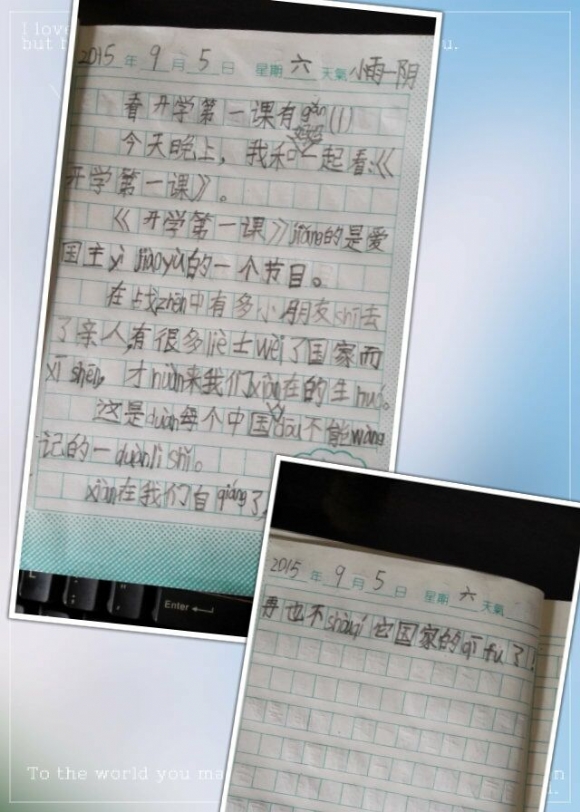 I love
but h
u.
2015 年 9 月 5 日 星期 六 天氣 小雨—阴
看开学第一课有gǎn(1)
今天晚上，我和妈妈一起看:《
开学第一课》。
《开学第一课》jiǎng的是爱
国主yì jiàoyù的一个节目。
在战zhēn中有多小朋友shī去
了亲人,有很多liè士wèi了国家而
xī shēn，才huàn来我们xiàn在的生huó。
这是duàn每个中国人dōu不能wàng
记的一duàn lì shǐ。
xiàn在我们自qiáng了,
Enter
2015 年 9 月 5 日 星期 六 天氣
再也不shòu
国家的qī fu了!
To the world you ma
on
u.